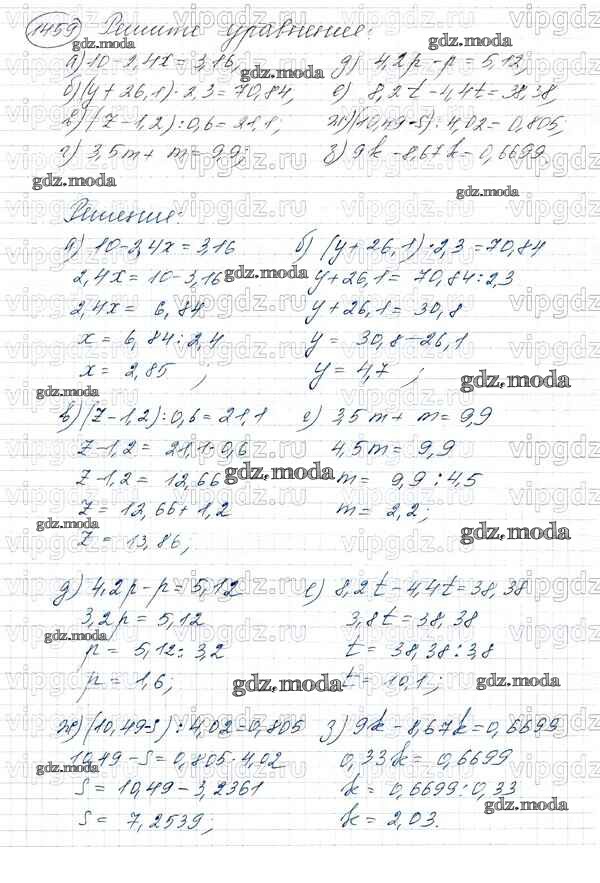 1459 Решите уравнение:
а) 10-2,4x=3,16, д) 4,2p-p=5,12,
б) (y+26,1)·2,3=70,84, е) 8,2t-4,4t=38,38,
в) (z-1,2):0,6=21,1; ж) (10,49-s):4,02=0,805,
г) 3,5m+m=9,9; з) 9k-8,67k=0,6699.
Решение:
а) 10-2,4x=3,16 б) (y+26,1)·2,3=70,84
2,4x=10-3,16 y+26,1=70,84:2,3
2,4x=6,84 y+26,1=30,8
x=6,84:2,4 y=30,8-26,1
x=2,85; y=4,7;
в) (z-1,2):0,6=21,1 г) 3,5m+m=9,9
z-1,2=21,1·0,6 4,5m=9,9
z-1,2=12,66 m=9,9:4,5
z=12,66+1,2 m=2,2;
z=13,86;
д) 4,2p-p=5,12 е) 8,2t-4,4t=38,38
3,2p=5,12 3,8t=38,38
p=5,12:3,2 t=38,38:3,8
p=1,6; t=10,1;
ж) (10,49-s):4,02=0,805 з) 9k-8,67k=0,6699
10,49-s=0,805·4,02 0,33k=0,6699
s=10,49-3,2361 k=0,6699:0,33
s=7,2539; k=2,03.
gdz.moda
vipgdz.ru